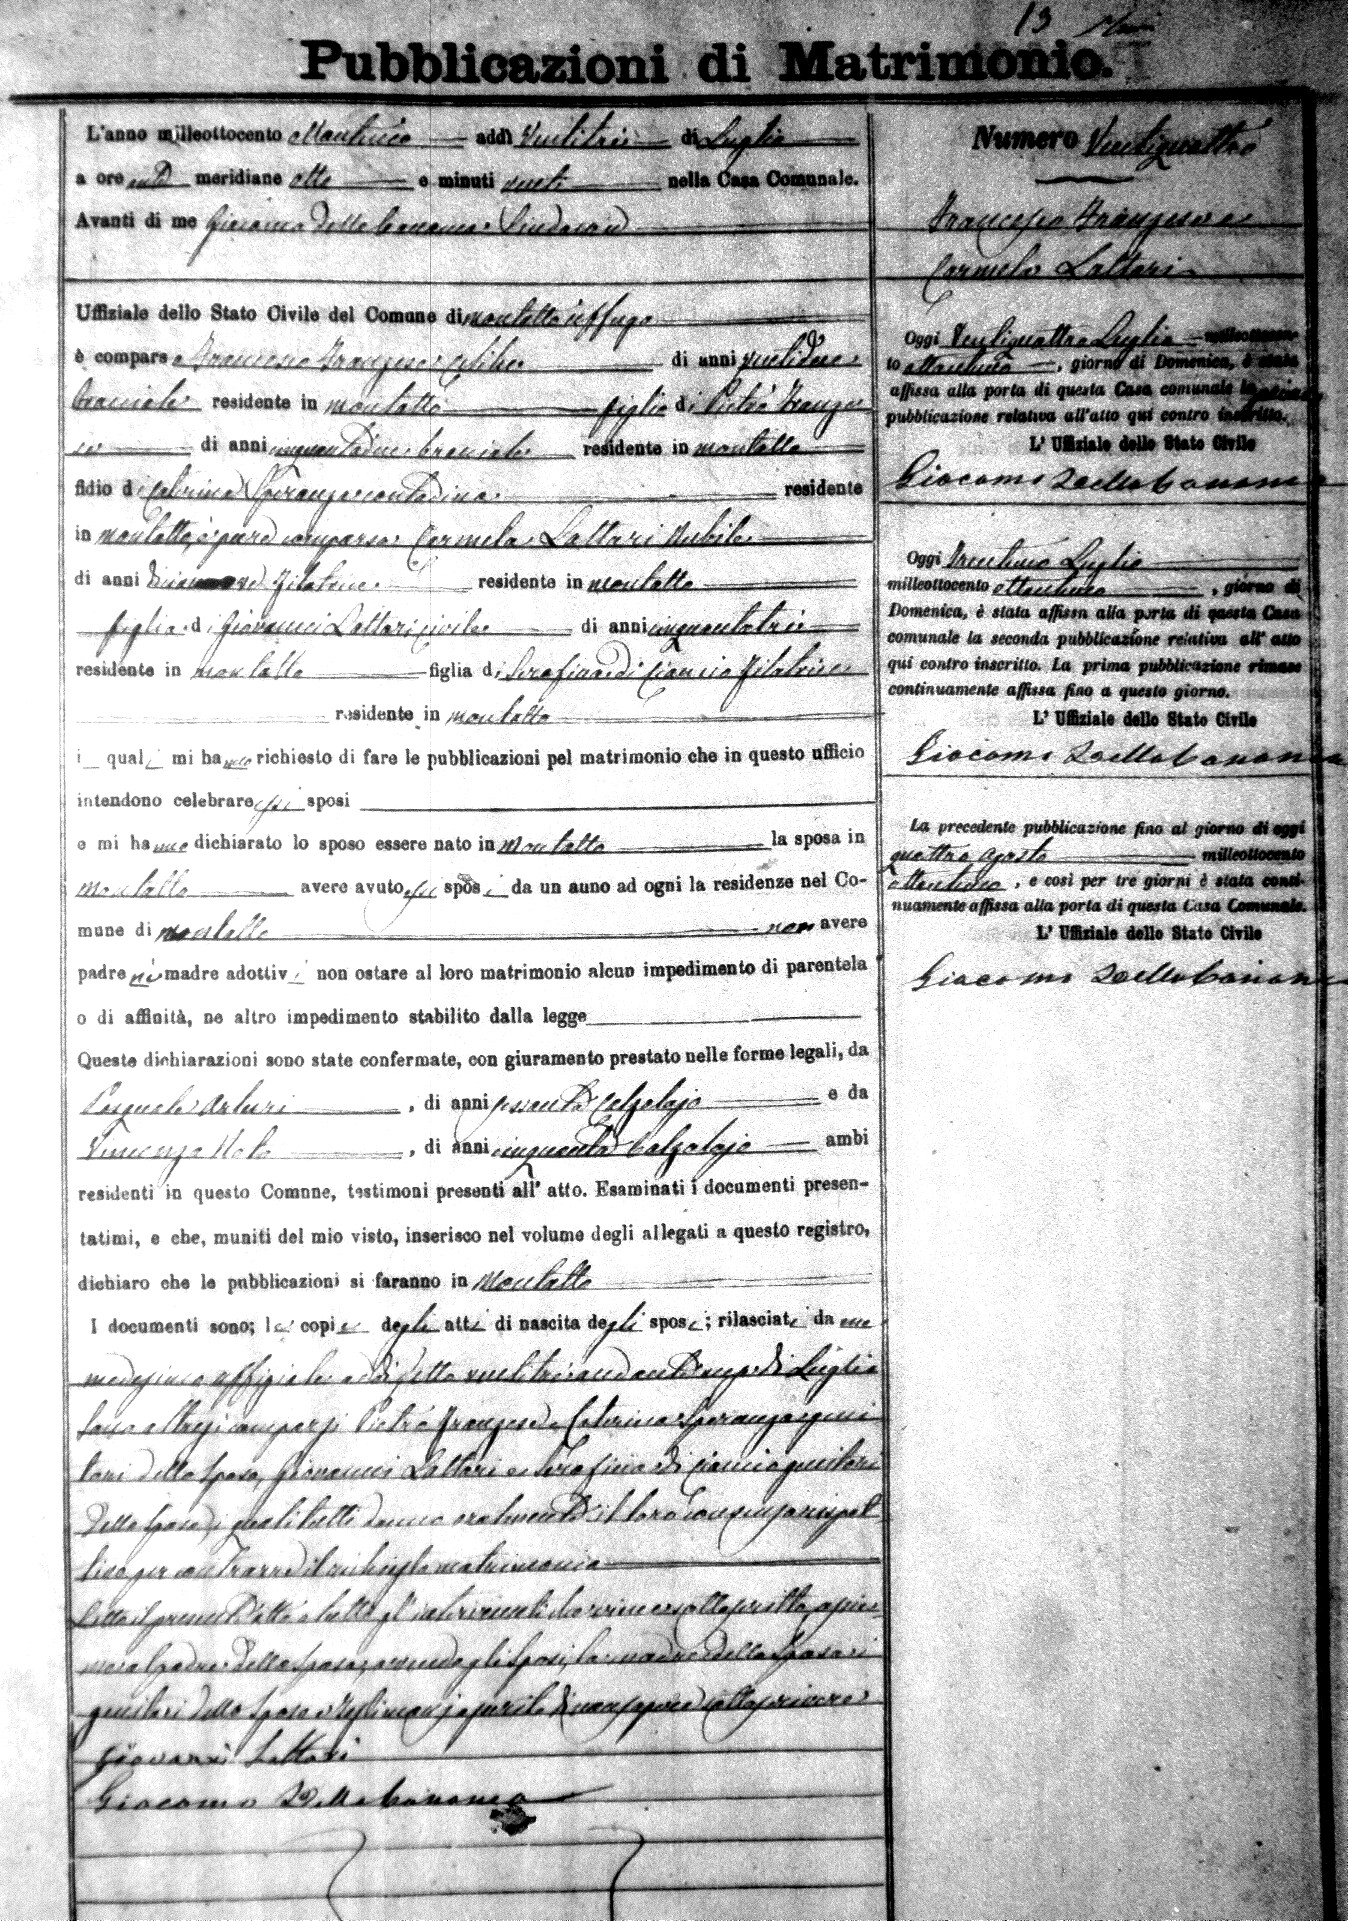 13
Pubblicazioni di Matrimonio.
L'anno milleottocento ottantuno addì ventitrè di Luglio
a ore anti meridiane otto e minuti venti nella Casa Comunale.
Avanti di me Giacomo Della Cananea Sindaco
Uffiziale dello Stato Civile del Comune di Montalto Uffugo
è comparso Francesco Franzese celibe di anni ventidue
bracciale residente in Montalto figlio di Pietro Franze
se di anni cinquantadue bracciale residente in Montalto
fidio di Caterina Speranza contadina residente
in Montalto, è pure comparsa Carmela Lattari Nubile
di anni filatrice residente in Montalto
figlia di Giovanni Lattari civile di anni cinquantatrè
residente in Montalto figlia di Serafina di Ciancio filatrice
residente in Montalto
i quali mi hanno richiesto di fare le pubblicazioni pel matrimonio che in questo ufficio
intendono celebrare essi sposi
e mi hanno dichiarato lo sposo essere nato in Montalto la sposa in
Montalto avere avuto essi sposi da un anno ad ogni la residenze nel Co-
mune di Montalto non avere
padre nè madre adottivi non ostare al loro matrimonio alcun impedimento di parentela
o di affinità, ne altro impedimento stabilito dalla legge
Queste dichiarazioni sono state confermate, con giuramento prestato nelle forme legali, da
Pasquale Arturi, di anni sessanta Calzolajo e da
Vincenzo, di anni cinquanta Calzolajo ambi
residenti in questo Comune, testimoni presenti all' atto. Esaminati i documenti presen-
tatimi, e che, muniti del mio visto, inserisco nel volume degli allegati a questo registro,
dichiaro che le pubblicazioni si faranno in Montalto
I documenti sono; le copie degli atti di nascita degli sposi; rilasciati da me
medesimo uffiziale addì ventitrè andante mese di Luglio
Sono altresì comparsi Pietro Franzese e Caterina Speranza geni
tori dello sposo, Giovanni Lattari e Serafina di Ciancio genitori
della sposa, i quali tutti danno oralmente il loro consenso rispet
tivo per contrarre il richiesto matrimonio
Letto il presente atto a tutti gl'intervenuti viene sottoscritto
me e al padre della sposa, avendo gli sposi, la madre della sposa i
genitori dello sposo e testimonj asserito di non sapere sottoscrivere
Giovanni Lattari
Giacomo Della Cananea
Numero Ventiquattro
Francesco Franzese e
Carmela Lattari
Oggi Ventiquattro Luglio milleottocen-
to ottantuno, giorno di Domenica, è stata
affissa alla porta di questa Casa comunale la prima
pubblicazione relativa all'atto qui contro inscritto.
L' Uffiziale dello Stato Civile
Giacomo Della Cananea
Oggi Trentuno Luglio
milleottocento ottantuno, giorno di
Domenica, è stata affissa alla porta di questa Casa
comunale la seconda pubblicazione relativa all' atto
qui contro inscritto. La prima pubblicazione rimase
continuamente affissa fino a questo giorno.
L' Uffiziale dello Stato Civile
Giacomo Della Cananea
La precedente pubblicazione fino al giorno di oggi
quattro Agosto milleottocento
ottantuno, e così per tre giorni è stata conti-
nuamente affissa alla porta di questa Casa Comunale.
L' Uffiziale dello Stato Civile
Giacomo Della Cananea